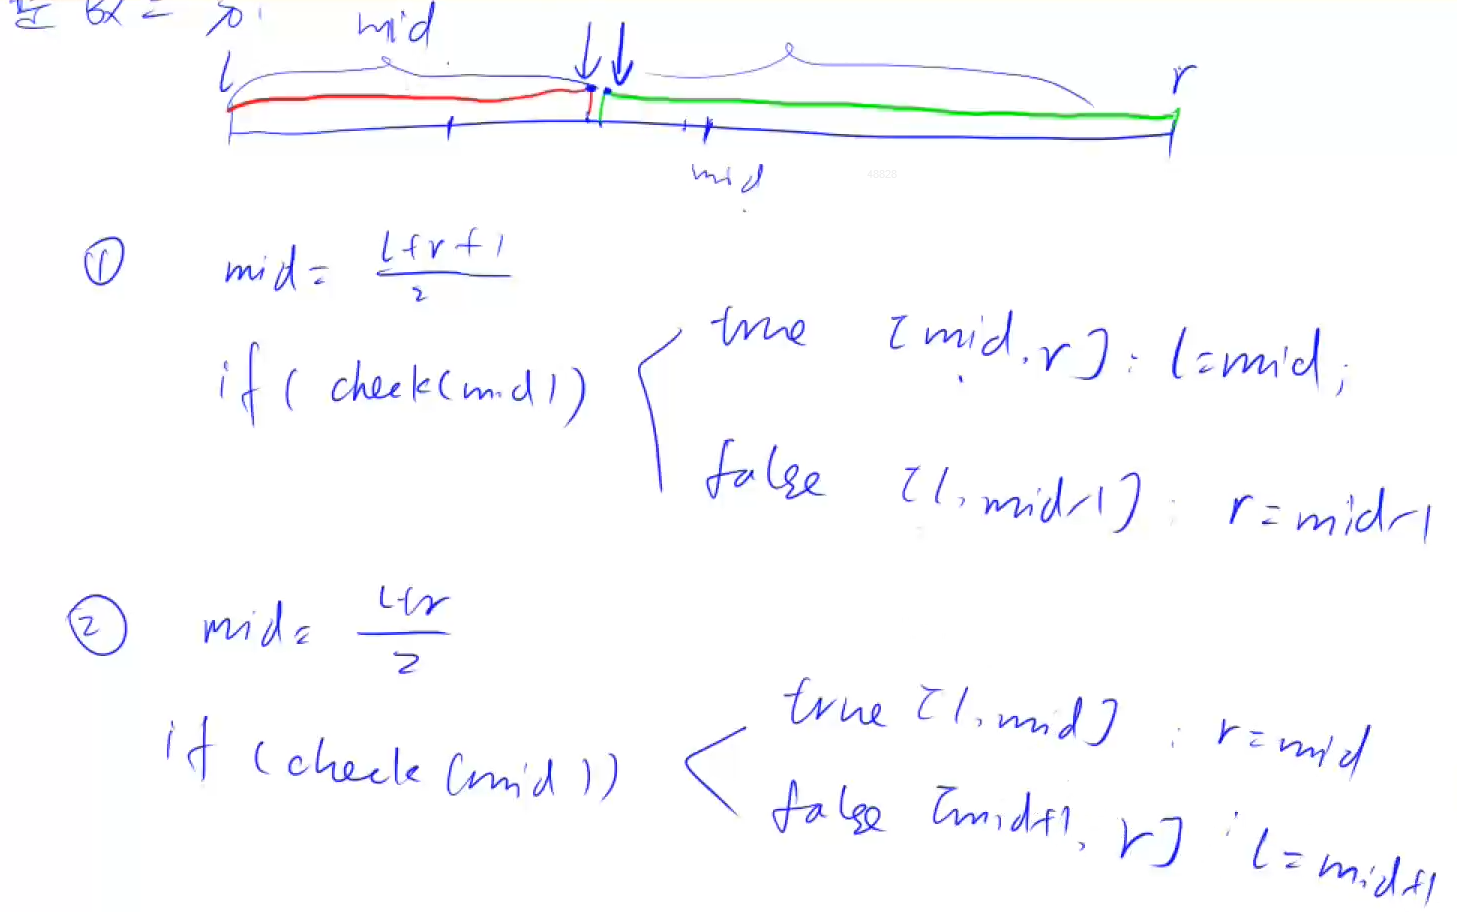 mid
l
r
mid
48829
① mid = (l+r+1)/2
if ( check(mid))
true [mid, r] : l=mid;
false [l, mid-1] : r=mid-1
② mid = (l+r)/2
if (check (mid))
true [l, mid] : r=mid
false [mid+1, r] : l=mid+1